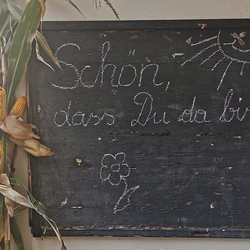 Schön,
dass Du da bis